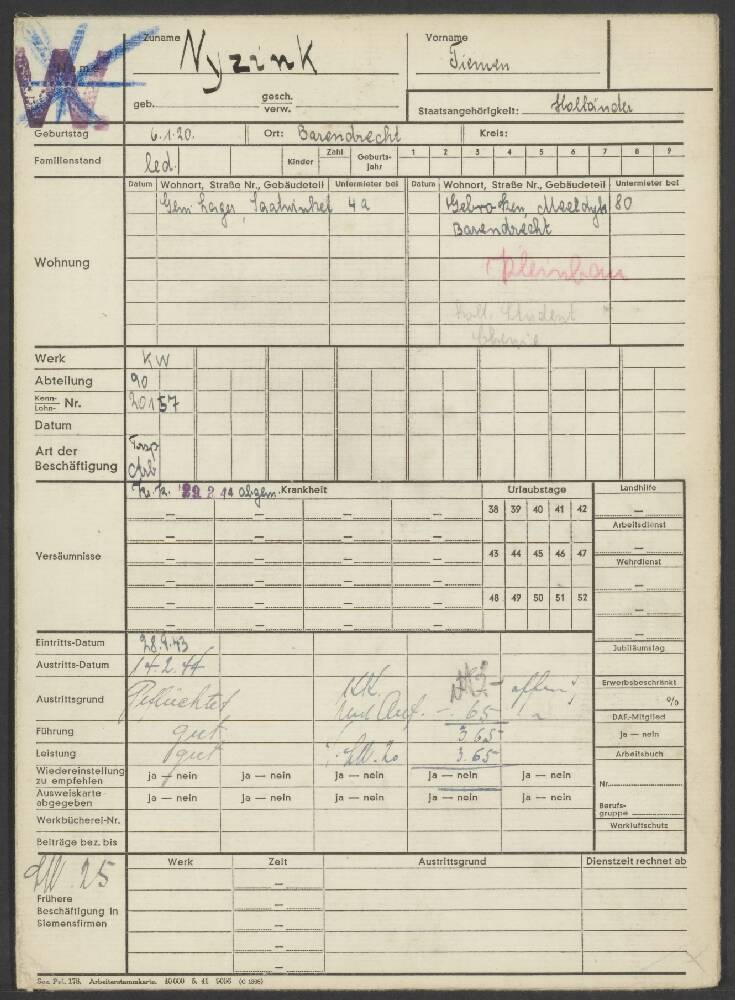 Zuname Nyzink Vorname Tiemen
Name
geb. gesch. verw. Staatsangehörigkeit: Holländer
Geburtstag 6.1.20. Ort: Barendrecht Kreis:
Familienstand led. Kinder Zahl Geburts-jahr 1 2 3 4 5 6 7 8 9
Datum Wohnort, Straße Nr., Gebäudeteil Untermieter bei Datum Wohnort, Straße Nr., Gebäudeteil Untermieter bei
Gem Lager, Saatwinkel 4a 80
Barendrecht
Wohnung
Kleinbau
holl. Student
Chemie
Werk KW
Abteilung 90
Kenn- Lohn- Nr. 20157
Datum
Art der Beschäftigung Trsp Arb
29 2 44 abgem. Krankheit Urlaubstage Landhilfe
38 39 40 41 42
Arbeitsdienst
Versäumnisse 43 44 45 46 47 Wehrdienst
48 49 50 51 52
Eintritts-Datum 28.9.43 Jubiläumstag
Austritts-Datum 14.2.44
Austrittsgrund Geflüchtet KK. offen Erwerbsbeschränkt %
und -.65
Führung gut 3.65 DAF-Mitglied
ja — nein
Leistung gut 3.65 Arbeitsbuch
Wiedereinstellung zu empfehlen ja — nein ja — nein ja — nein ja — nein ja — nein
Nr.
Ausweiskarte abgegeben ja — nein ja — nein ja — nein ja — nein ja — nein
Berufsgruppe
Werkbücherei-Nr. Werkluftschutz
Beiträge bez. bis
Werk Zeit Austrittsgrund Dienstzeit rechnet ab
25
Frühere
Beschäftigung in
Siemensfirmen
Arbeiterstammkarte. 10000 5. 41